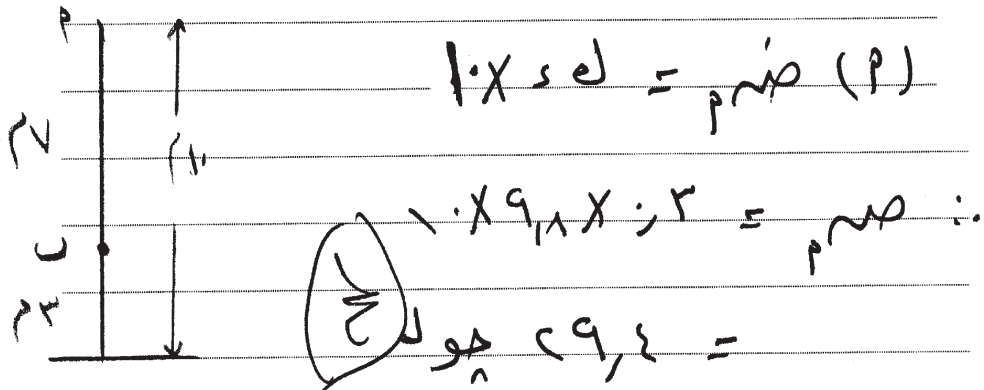 (٢) ضم = ك د × ١٠
∴ ضم = ٠,٣ × ٩,٨ × ١٠
= ٢٩,٤ جول
٢
٧م
١٠م
ب
٣م